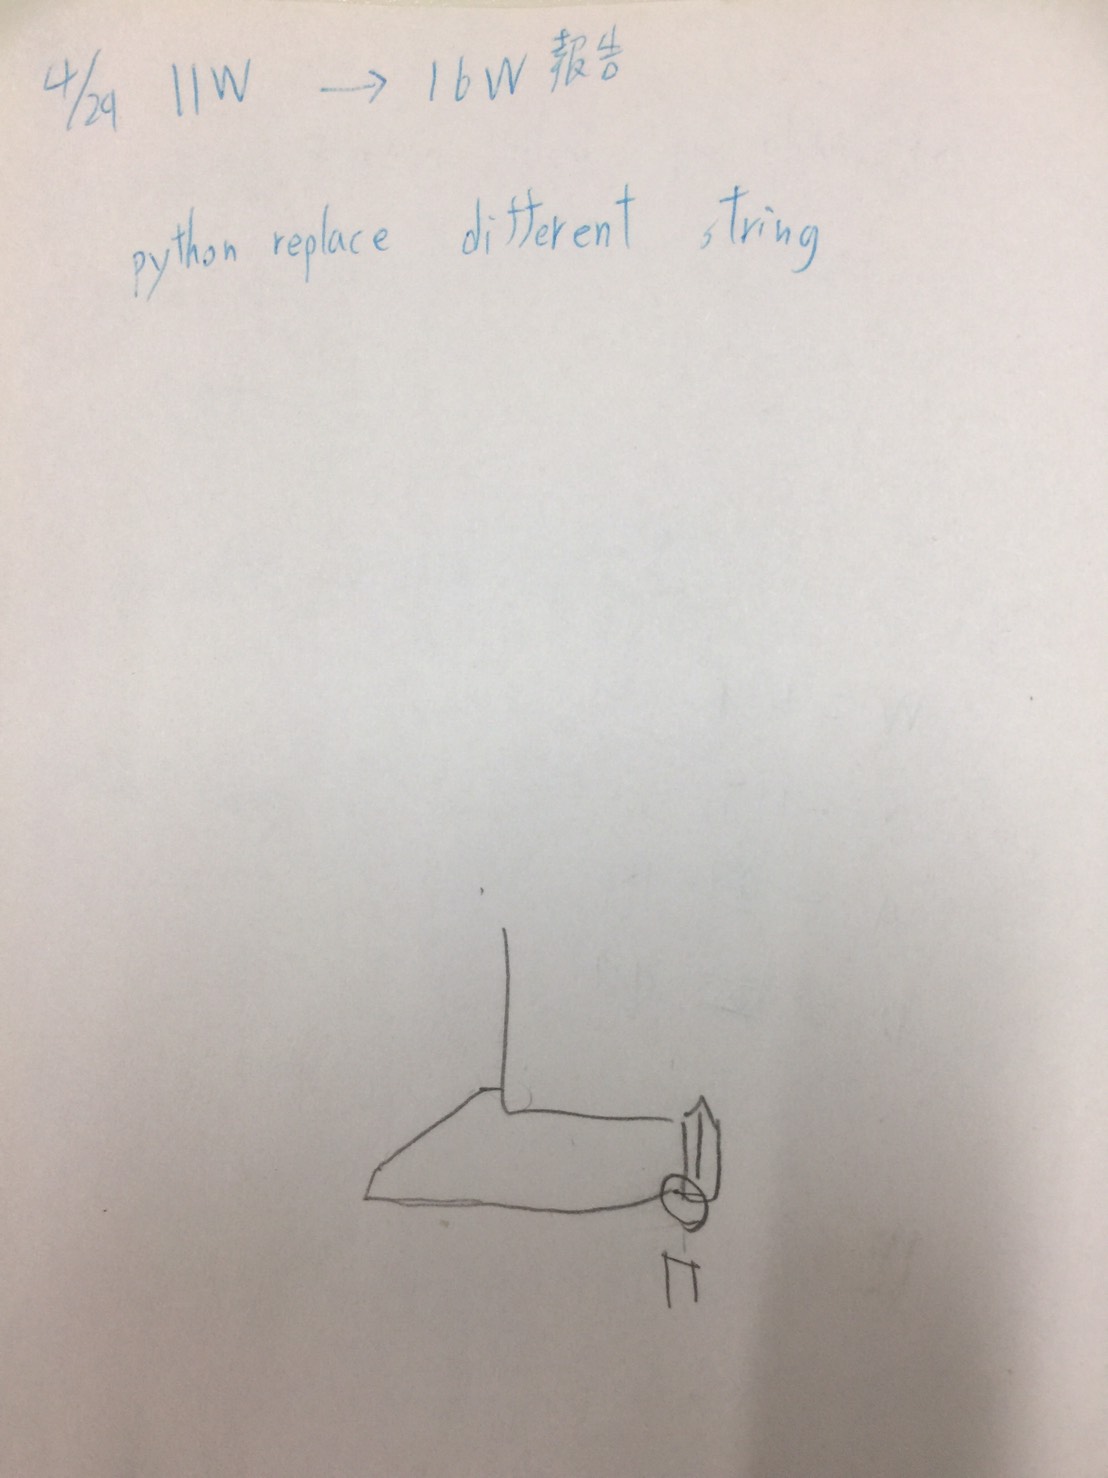 4/29 11W → 16W 報告
python replace different string